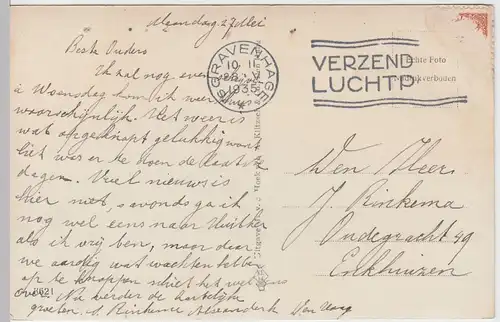 Maandag 27 Mei
Beste Ouders
Ik zal nog even
a Woensdag kom ik weer thuis
waarschijnlijk. Het weer is
wat opgeknapt gelukkig want
het was er te doen de laatste
dagen. Veel nieuws is
hier niet, s'avonds ga ik
nog wel eens naar
als ik vrij ben, maar daar
we aardig wat wachten hebben
op te knappen schiet het wel eens
over. Nu verder de hartelijke
groeten. A. Rinkema
Den Haag
'S GRAVENHAGE
10-11
28.V
1935
VERZEND
LUCHTP
Echte Foto
Nadrukverboden
Den Heer
J. Rinkema
Oudegracht 49
Enkhuizen
8621